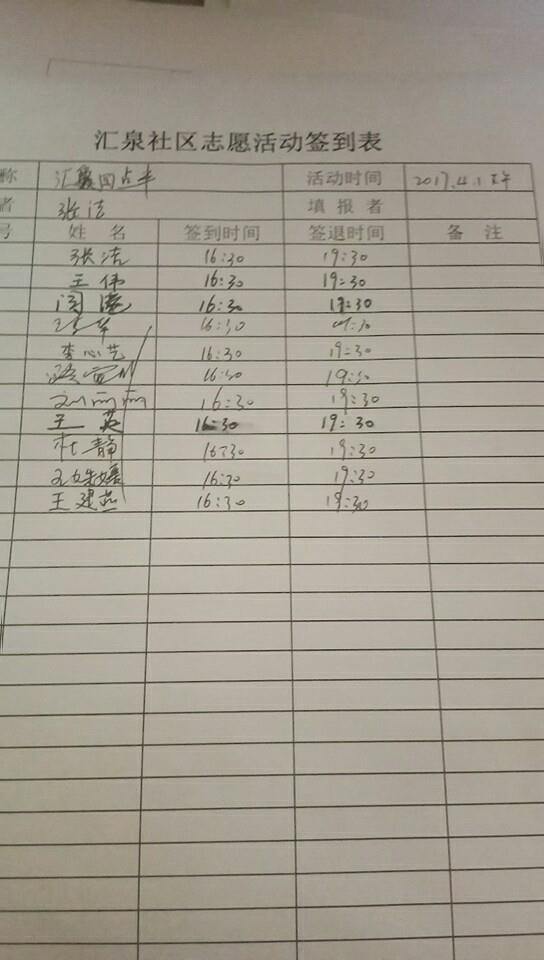 汇泉社区志愿活动签到表
称 汇泉四点半 活动时间 2017.4.1 下午
者 张洁 填报者
号 姓名 签到时间 签退时间 备注
张洁 16:30 19:30
王伟 16:30 19:30
闫 16:30 19:30
16:30 19:30
李心艺 16:30 19:30
16:30 19:30
刘丽丽 16:30 19:30
王英 16:30 19:30
杜静 16:30 19:30
16:30 19:30
王建燕 16:30 19:30